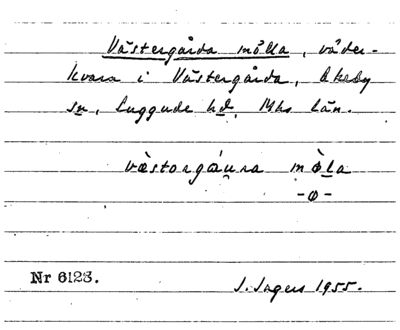 Västergårda mölla, väder-
kvarn i Västergårda, Ekeby
sn, Luggude hd, Mhs län.
væstorgáu̯ra mø̀la
-o-
Nr 6123.
J. Ingers 1955.